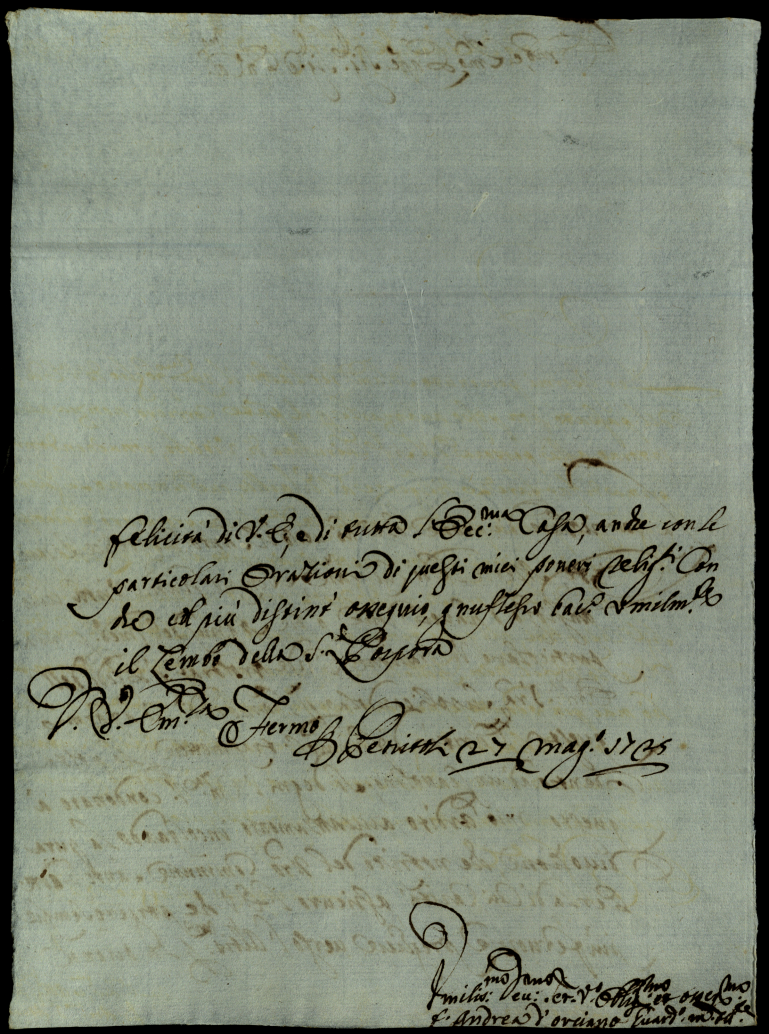 felicità di V. E., e di tutta l'Ecc.ma Casa, anche con le
particolari Orazioni di questi miei poveri Relig.i Con
che col più distint' ossequio, genuflesso bacio umilm.te
il Lembo della S. Porpora
D. V. Em.za Fermo
27 Mag.o 1725
Umilis.mo Dev.mo et Obblig.mo et osseq.mo
f. Andrea d'Orciano Guard.